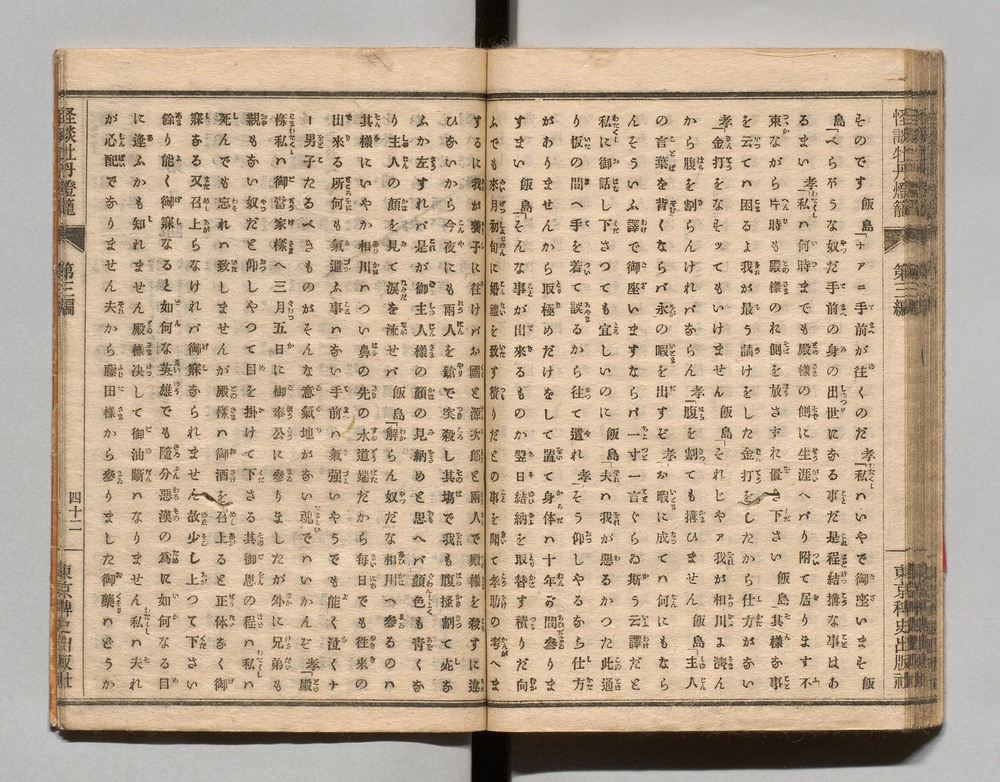 怪談牡丹燈籠
第三編
東京稗史出版社
そのです飯島「ナァニ手前が往くのだ 孝「私ハいやで御座いまそ 飯
島「べらぼうな奴だ手前の身の出世にある事だ是程結搆な事はあ
るまい 孝「私ハ何時までも殿様の側に生涯へバり附て居ります不
束ながら片時も殿様のお側を放さずお置下さい 飯島「其様お事
を云てハ困るよ我が最う請けをした金打をしたから仕方がおい
孝「金打をなそッてもいけません 飯島「それじやァ我が相川ゑ濟ん
から腹を割らんけれバおらん 孝「腹を割ても搆ひません 飯島「主人
の言葉を背くならバ永の暇を出すぞ 孝「お暇に成てハ何にもなら
んそういふ譯で御座いますならバ一寸一言ぐらゐ斯う云譯だと
私に御話し下さつても宜しいのに 飯島「夫ハ我が悪るかつた此通
り板の間へ手を着て誤るから往て遣れ 孝「そう仰しやるおら仕方
がありませんから取極めだけをして置て身体ハ十年の間參りま
すまい 飯島「そんな事が出來るものか翌日結納を取替す積りだ向
ふでも來月初旬に婚禮を致す積りだとの事を聞て孝助の考へま
するに我が養子に往けバお國と源次郎と兩人で殿様を殺すに違
ひおいから今夜にも兩人を鎗で突殺し其塲で我も腹掻割て死お
ふか左すれバ是が御主人様の顔の見納めと思へバ顔色も青くお
り主人の顔を見て涙を流せバ 飯島「解らん奴だな相川へ參るのハ
其様にいやか相川ハつい鼻の先の水道端だから毎日でも往來の
出來る所何も氣遣ふ事ハおい手前ハ氣強いやうでも能く泣くナ
ー男子たるべきものがそんな意氣地がおい魂でハいかんぞ 孝「殿
様私ハ御當家様へ三月五日に御奉公に參りましたが外に兄弟も
親もおい奴だと仰しやつて目を掛て下さる其御恩の程ハ私ハ
死んでも忘れハ致しませんが殿様ハ御酒を召上ると正体おく御
寐おる又召上らなけれバ御寐おられません故少し上つて下さい
餘り能く御寐なると如何な英雄でも隨分惡漢の為に如何なる目
に逢ふかも知れません殿様决して御油斷ハなりません私ハ夫れ
が心配でおりません夫から藤田様から參りました御藥ハどうか
怪談牡丹燈籠
第三編
四十二
東京稗史出版社